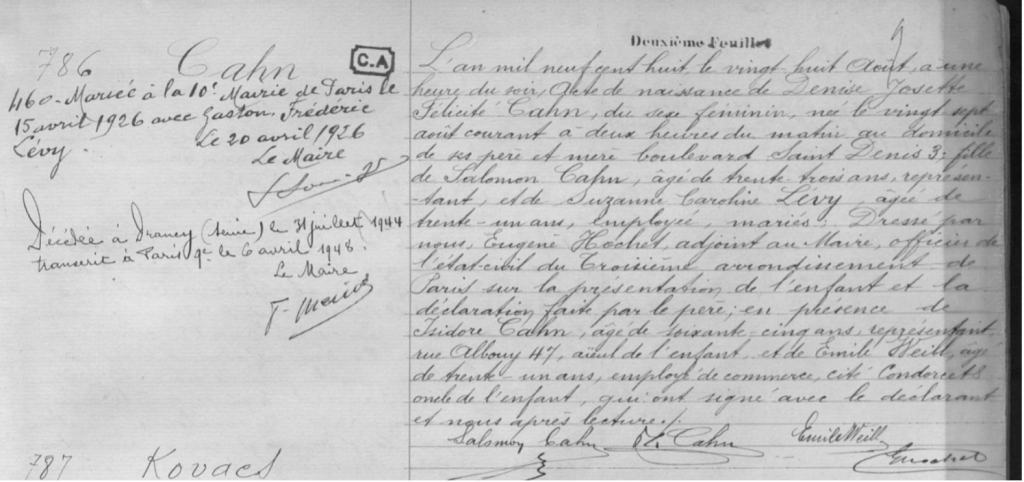 Deuxième Feuillet
9
786
Cahn
C.A
460 - Mariée à la 10e Mairie de Paris le
15 avril 1926 avec Gaston, Frédéric
Lévy.
Le 20 avril 1926
Le Maire
Décédée à Drancy (Seine) le 31 juillet 1944
transcrit à Paris 9e le 6 avril 1948.
Le Maire
L'an mil neuf cent huit, le vingt-huit Août, à une
heure du soir, Acte de naissance de Denise Josette
Félicité Cahn, du sexe féminin, née le vingt sept
août courant à deux heures du matin au domicile
de ses père et mère boulevard Saint Denis 3; fille
de Salomon Cahn, âgé de trente-trois ans, représen-
tant, et de Suzanne Caroline Lévy, âgée de
trente-un ans, employée, mariés, Dressé par
nous, Eugène Hochet, adjoint au Maire, officier de
l'état-civil du Troisième arrondissement de
Paris sur la présentation de l'enfant et la
déclaration faite par le père; en présence de
Isidore Cahn, âgé de soixante-cinq ans, représentant
rue Albouy 47, aïeul de l'enfant et de Emile Weill, âgé
de trente-un ans, employé de commerce, cité Condorcet 8
oncle de l'enfant, qui ont signé avec le déclarant
et nous après lecture ./.
Salomon Cahn Cahn Emile Weill
787
Kovacs